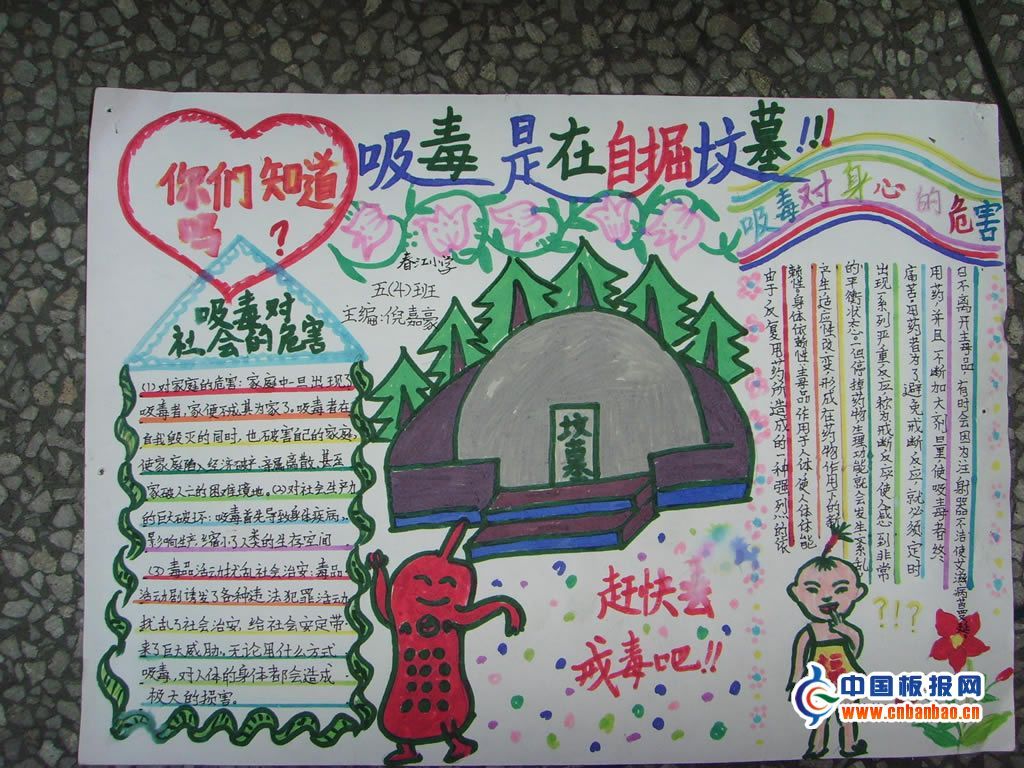 吸毒是在自掘坟墓!!!
你们知道
吗?
春江小学
五(4)班
主编:倪嘉豪
吸毒对
社会的危害
(1)对家庭的危害:家庭中一旦出现了
吸毒者,家便不成其为家了。吸毒者在
自我毁灭的同时,也破害自己的家庭,
使家庭陷入经济破产、亲属离散、甚至
家破人亡的困难境地。(2)对社会生产力
的巨大破坏:吸毒首先导致身体疾病,
影响生产,缩小了人类的生存空间
(3)毒品活动扰乱社会治安:毒品
活动剧诱发了各种违法犯罪活动,
扰乱了社会治安,给社会安定带
来了巨大威胁。无论用什么方式
吸毒,对人体的身体都会造成
极大的损害。
坟墓
赶快去
戒毒吧!!
吸毒对身心的危害
由于反复用药所造成的一种强烈的依
赖性。身体依赖性主毒品作用于人体,使人体体能
产生适应性改变,形成在药物作用下的新
的平衡状态。一但停掉药物,生理功能就会发生紊乱
出现一系列严重反应,称为戒断反应,使人感到非常
痛苦。用药者为了避免戒断反应,就必须定时
用药,并且不断加大剂量,使吸毒者终
日不离开主毒品,有时会因为注射器不洁使艾滋病
?!?
福
中国板报网
www.cnbanbao.cn